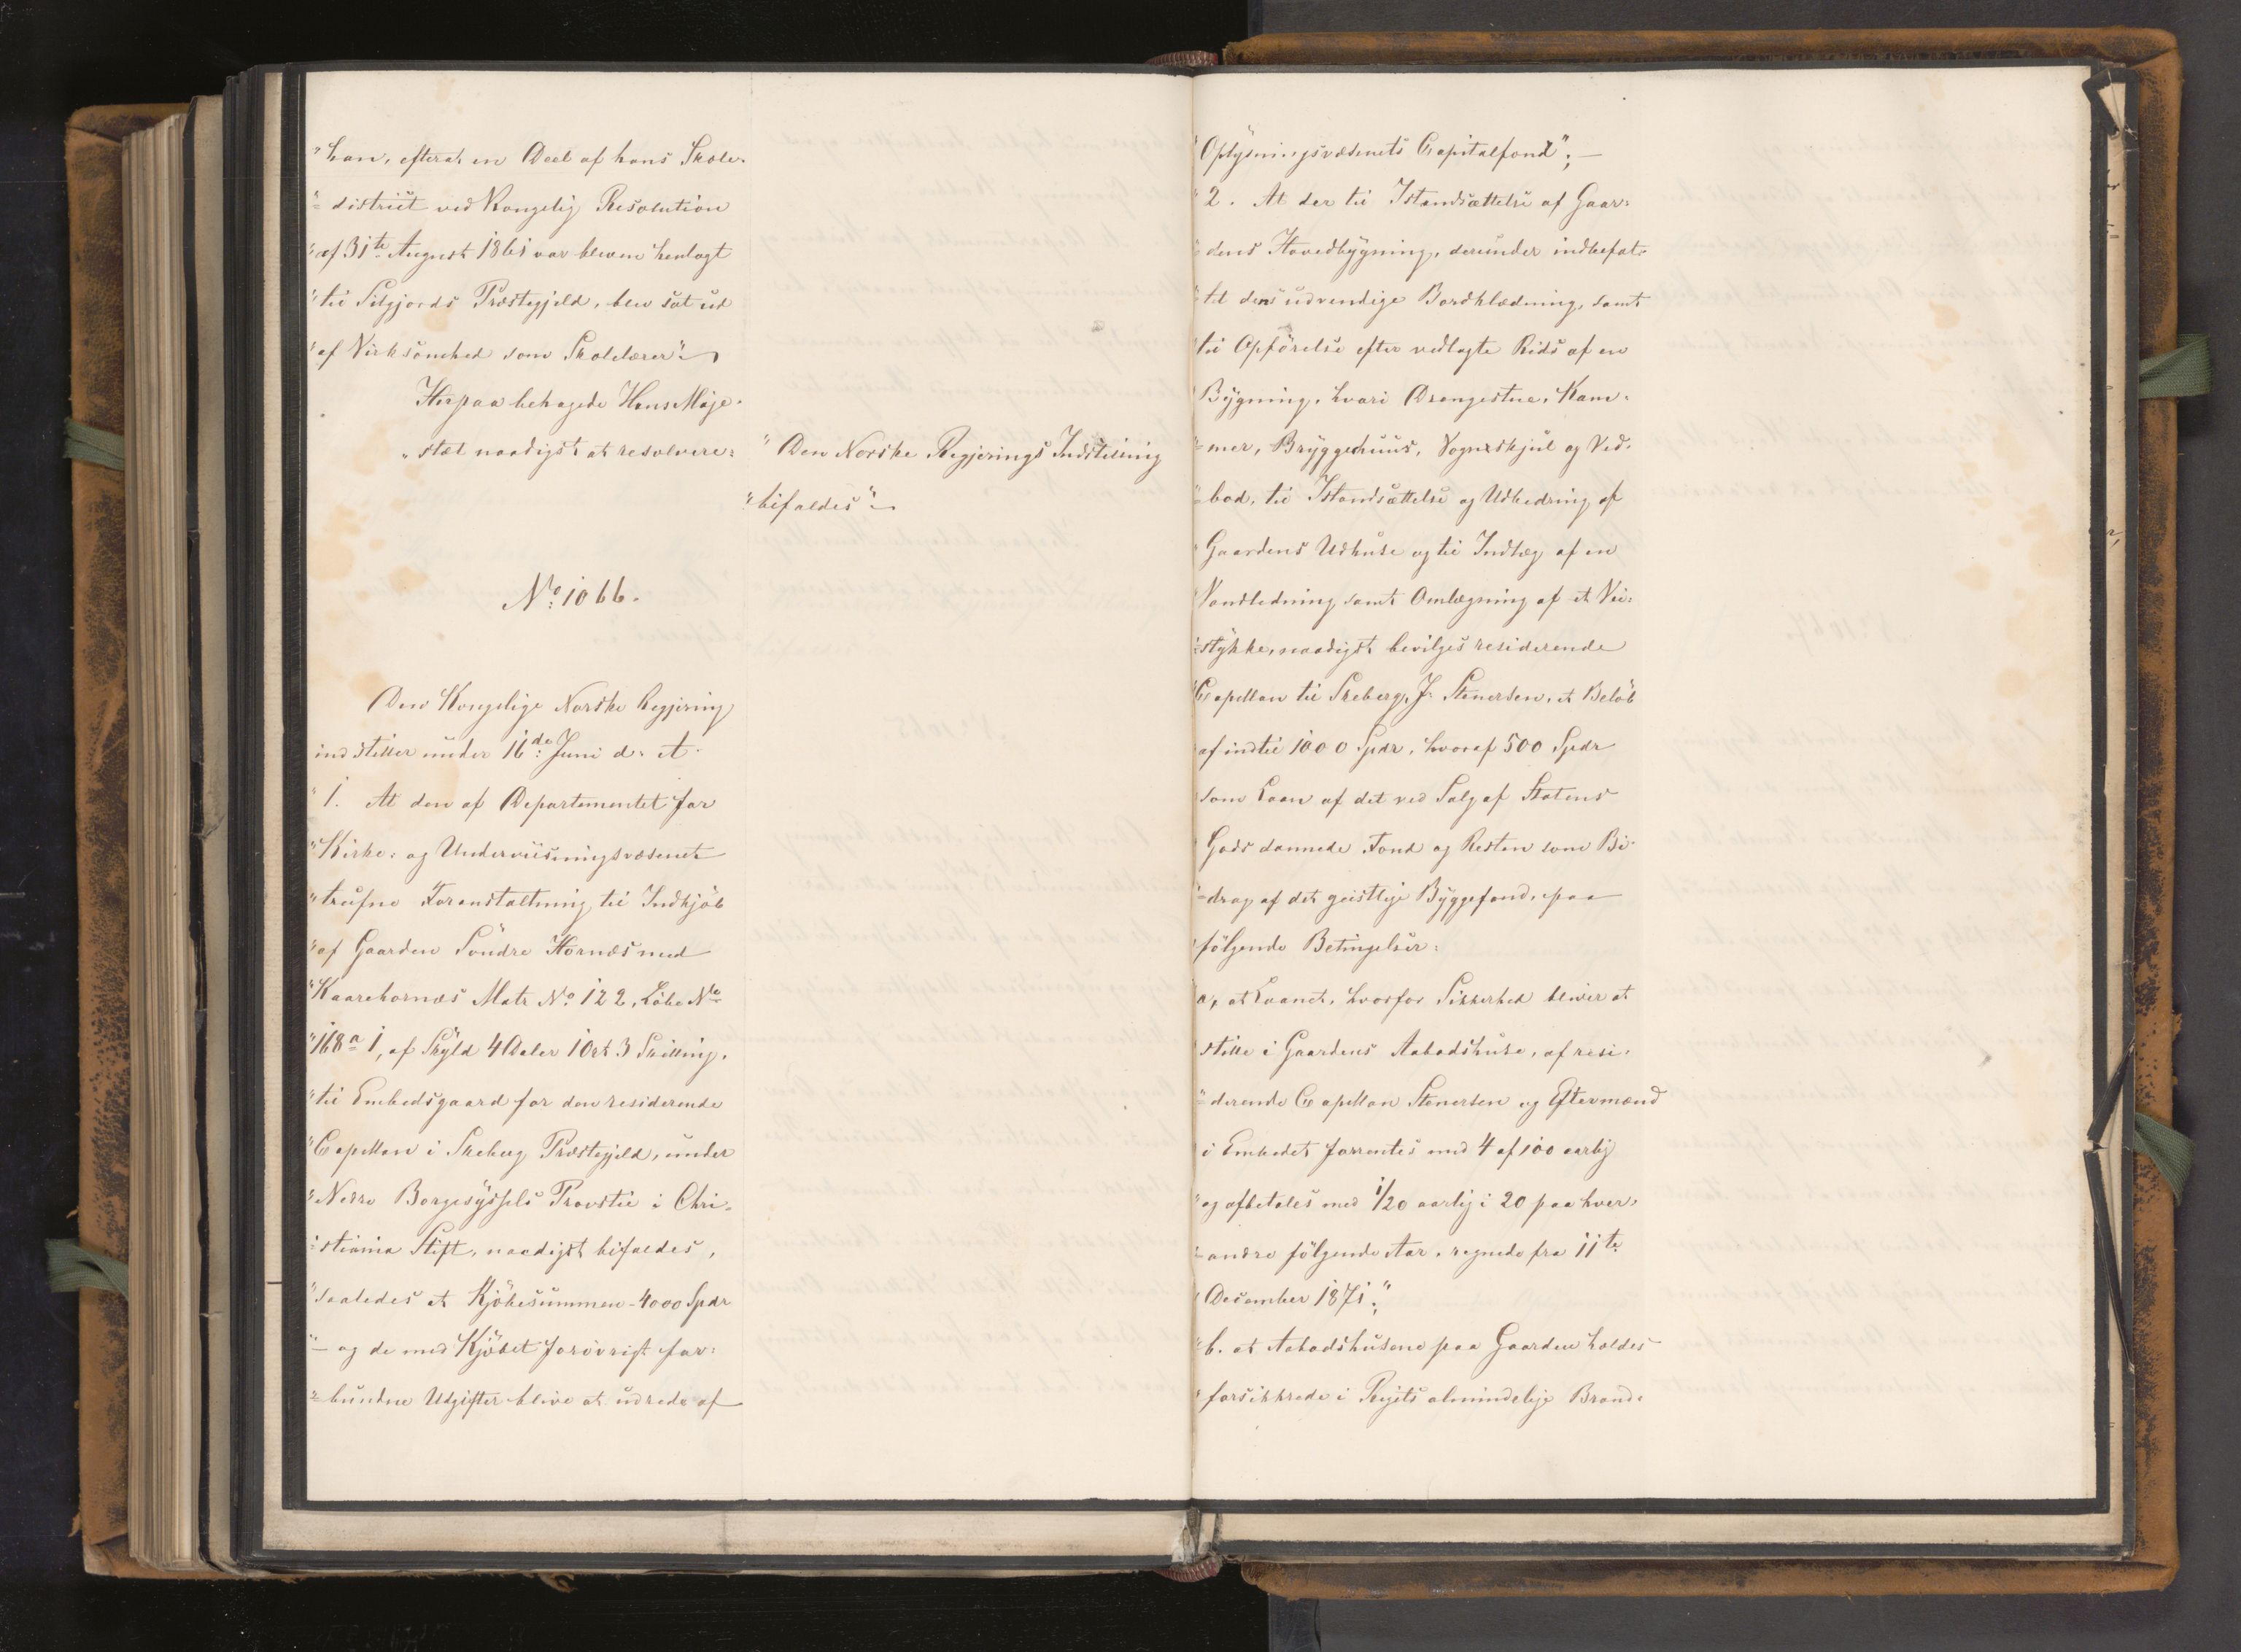 "han, efterat en Deel af hans Skole-
"=district ved Kongelig Resolution
"af 31te August 1861 var bleven henlagt
"til Silgjords Præstegjeld, blev sat ud
"af Virksomhed som Skolelærer".
Herpaa behagede Hans Maje-
"stæt naadigst at resolvere:
"Den Norske Regjerings Indstilling
"bifaldes".
No: 1066.
Den Kongelige Norske Regjering
indstiller under 16de Juni d. A.
"1. At den af Departementet for
"Kirke- og Underviisningsvæsenet
"trufne Foranstaltning til Indkjöb
"af Gaarden Söndre Hornæs med
"Kaarehornæs Matr No 122, Löbe No
"168a 1, af Skyld 4 Daler 1 Ort 3 Skilling,
"til Embedsgaard for den residerende
"Capellan i Skeberg Præstegjeld, under
"Nedre Borgesyssels Provstie i Chri-
"stiania Stift, naadigst bifaldes,
"saaledes at Kjöbesummen - 4000 Spdr
"- og de med Kjöbet forövrigt for-
"=bundne Udgifter blive at udrede af
"Oplysningsvæsenets Capitalfond"; —
"2. At der til Istandsættelse af Gaar-
"=dens Hovedbygning, derunder indbefat-
"=tet dens udvendige Bordklædning, samt
"til Opförelse efter vedlagte Rids af en
"Bygning, hvori Drengestue, Kam-
"=mer, Bryggerhuus, Vognskjul og Ved-
"=bod, til Istandsættelse og Udbedring af
"Gaardens Udhuse og til Indlæg af en
"Vandledning samt Omlægning af et Vei-
"=stykke, naadigst bevilges residerende
"Capellan til Skeberg, J. Stenersen, et Belöb
"af indtil 1000 Spdr, hvoraf 500 Spdr
"som Laan af det ved Salg af Statens
"Gods dannede Fond og Resten som Bi-
"=drag af det geistlige Byggefond, paa
"følgende Betingelser:
"a, at Laanet, hvorfor Sikkerhed bliver at
"stille i Gaardens Aabodshuse, af resi-
"=derende Capellan Stenersen og Eftermænd
"i Embedet forrentes med 4 af 100 aarlig
"og afbetales med 1/20 aarlig i 20 paa hver-
"=andre fölgende Aar, regnede fra 11te
"December 1871;"
"b. at Aabodshusene paa Gaarden holdes
"forsikkrede i Rigets almindelige Brand-